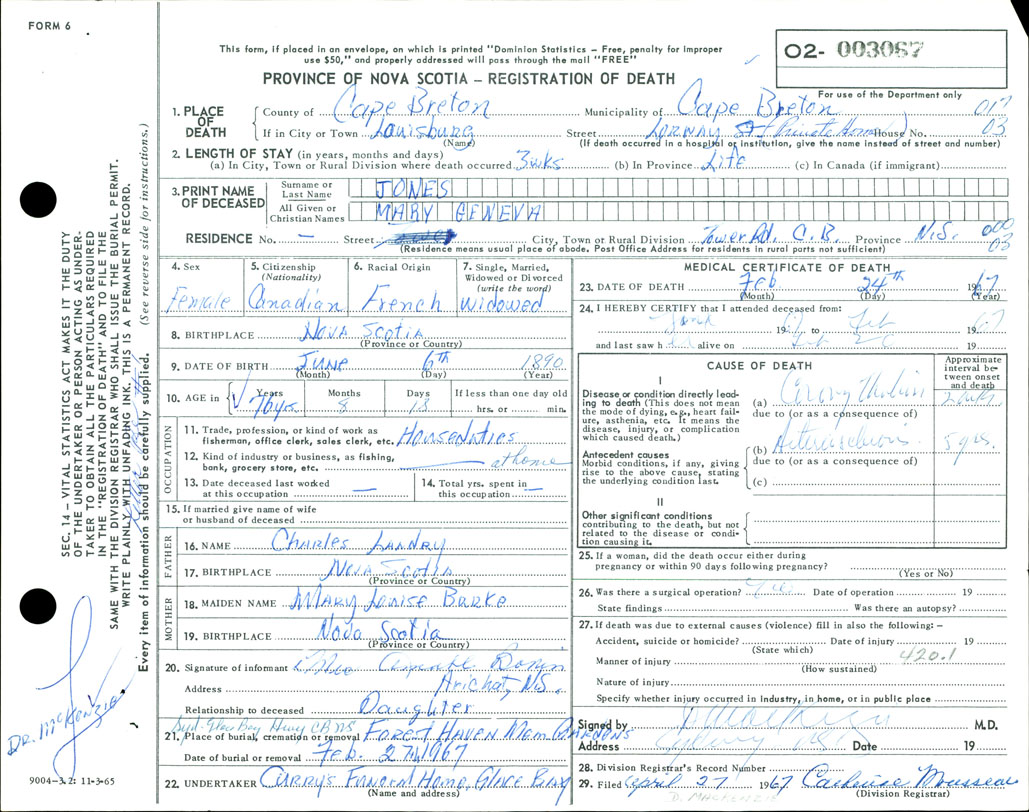 FORM 6
This form, if placed in an envelope, on which is printed "Dominion Statistics – Free, penalty for improper
use $50," and properly addressed will pass through the mail "FREE"
02- 003087
PROVINCE OF NOVA SCOTIA – REGISTRATION OF DEATH
For use of the Department only
1. PLACE OF DEATH
County of Cape Breton Municipality of Cape Breton 017
If in City or Town Louisburg Street Lorway St (Private Home) House No. 03
(Name) (If death occurred in a hospital or institution, give the name instead of street and number)
2. LENGTH OF STAY (in years, months and days)
(a) In City, Town or Rural Division where death occurred 3 wks (b) In Province Life (c) In Canada (if immigrant)
3. PRINT NAME OF DECEASED
Surname or Last Name JONES
All Given or Christian Names MARY GENEVA
RESIDENCE No. — Street City, Town or Rural Division Tower Rd, C.B. Province N.S. 000
03
(Residence means usual place of abode. Post Office Address for residents in rural parts not sufficient)
4. Sex Female
5. Citizenship (Nationality) Canadian
6. Racial Origin French
7. Single, Married, Widowed or Divorced (write the word) Widowed
8. BIRTHPLACE Nova Scotia
(Province or Country)
9. DATE OF BIRTH June 6th 1890
(Month) (Day) (Year)
10. AGE in Years Months Days If less than one day old
76 yrs 8 18 hrs. or min.
OCCUPATION
11. Trade, profession, or kind of work as
fisherman, office clerk, sales clerk, etc. Houseduties
12. Kind of industry or business, as fishing,
bank, grocery store, etc. at home
13. Date deceased last worked at this occupation —
14. Total yrs. spent in this occupation —
15. If married give name of wife
or husband of deceased
FATHER
16. NAME Charles Landry
17. BIRTHPLACE Nova Scotia
(Province or Country)
MOTHER
18. MAIDEN NAME Mary Louise Burke
19. BIRTHPLACE Nova Scotia
(Province or Country)
20. Signature of informant
Address Arichat, N.S.
Relationship to deceased Daughter
Syd-Glace Bay Hwy CB NS
21. Place of burial, cremation or removal Forest Haven Mem Gardens
Date of burial or removal Feb. 27th, 1967
22. UNDERTAKER Curry's Funeral Home, Glace Bay
(Name and address)
MEDICAL CERTIFICATE OF DEATH
23. DATE OF DEATH Feb 24th 1967
(Month) (Day) (Year)
24. I HEREBY CERTIFY that I attended deceased from:
19 67 to Feb 19 67
and last saw h alive on Feb 19
CAUSE OF DEATH
Approximate interval between onset and death
I
Disease or condition directly leading to death (This does not mean
the mode of dying, e.g., heart failure, asthenia, etc. It means the
disease, injury, or complication
which caused death.)
(a)
due to (or as a consequence of)
Antecedent causes
Morbid conditions, if any, giving
rise to the above cause, stating
the underlying condition last.
(b) 5 yrs.
due to (or as a consequence of)
(c)
II
Other significant conditions
contributing to the death, but not
related to the disease or condition causing it.
25. If a woman, did the death occur either during
pregnancy or within 90 days following pregnancy?
(Yes or No)
26. Was there a surgical operation? Date of operation 19
State findings Was there an autopsy?
27. If death was due to external causes (violence) fill in also the following: –
Accident, suicide or homicide? Date of injury 19
(State which)
Manner of injury 420.1
(How sustained)
Nature of injury
Specify whether injury occurred in industry, in home, or in public place
Signed by M.D.
Address Date 19
28. Division Registrar's Record Number
29. Filed April 27 1967 Catherine Mousseau
(Division Registrar)
D. MACKENZIE
SEC. 14 – VITAL STATISTICS ACT MAKES IT THE DUTY
OF THE UNDERTAKER OR PERSON ACTING AS UNDER-
TAKER TO OBTAIN ALL THE PARTICULARS REQUIRED
IN THE "REGISTRATION OF DEATH" AND TO FILE THE
SAME WITH THE DIVISION REGISTRAR WHO SHALL ISSUE THE BURIAL PERMIT.
WRITE PLAINLY WITH UNFADING INK. THIS IS A PERMANENT RECORD.
Every item of information should be carefully supplied. (See reverse side for instructions.)
DR. McKENZIE
9004-3.2: 11-3-65